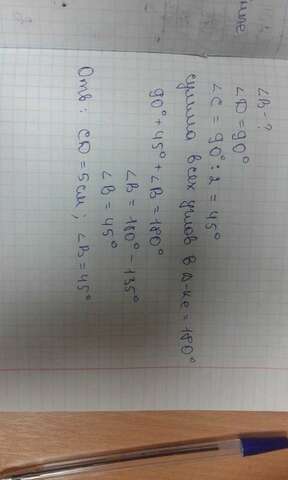 ∠B-?
∠D=90°
∠C = 90°:2 = 45°
сумма всех углов в Δ-ке =180°
90°+45°+∠B=180°
∠B=180°-135°
∠B=45°
Отв: CD=5см; ∠B=45°